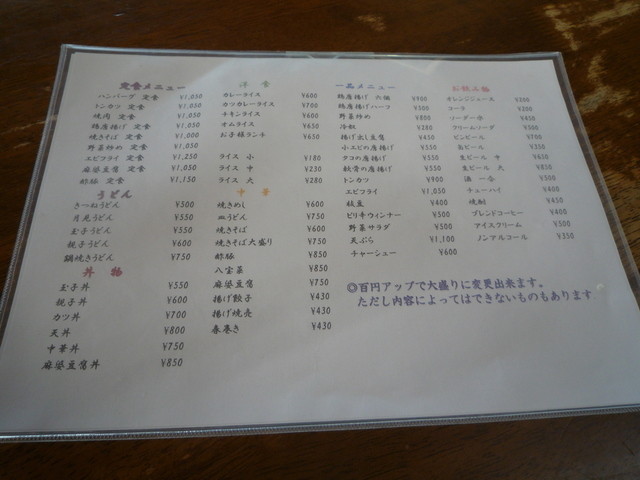 定食メニュー
ハンバーグ 定食 ¥1,050
トンカツ 定食 ¥1,050
焼肉 定食 ¥1,050
鶏唐揚げ 定食 ¥1,050
焼きそば 定食 ¥1,000
野菜炒め 定食 ¥1,050
エビフライ 定食 ¥1,250
麻婆豆腐 定食 ¥1,050
酢豚 定食 ¥1,150
うどん
きつねうどん ¥500
月見うどん ¥550
玉子うどん ¥550
親子うどん ¥600
鍋焼きうどん ¥750
丼 物
玉子丼 ¥550
親子丼 ¥600
カツ丼 ¥700
天丼 ¥800
中華丼 ¥750
麻婆豆腐丼 ¥850
洋 食
カレーライス ¥600
カツカレーライス ¥700
チキンライス ¥600
オムライス ¥650
お子様ランチ ¥650
ライス 小 ¥180
ライス 中 ¥230
ライス 大 ¥280
中 華
焼きめし ¥600
皿うどん ¥750
焼きそば ¥600
焼きそば大盛り ¥750
酢豚 ¥850
八宝菜 ¥850
麻婆豆腐 ¥750
揚げ餃子 ¥430
揚げ焼売 ¥430
春巻き ¥430
一品メニュー
鶏唐揚げ 六個 ¥900
鶏唐揚げハーフ ¥500
野菜炒め ¥800
冷奴 ¥280
揚げ出し豆腐 ¥450
小エビの唐揚げ ¥550
タコの唐揚げ ¥550
軟骨の唐揚げ ¥550
トンカツ ¥900
エビフライ ¥1,050
枝豆 ¥400
ピリ辛ウィンナー ¥500
野菜サラダ ¥500
天ぷら ¥1,100
チャーシュー ¥600
オレンジジュース
コーラ
ソーダー水
クリームソーダ ¥500
ビンビール ¥700
缶ビール ¥350
生ビール 中 ¥650
生ビール 大 ¥850
酒 一合 ¥500
チューハイ ¥400
焼酎 ¥450
ブレンドコーヒー ¥400
アイスクリーム ¥500
ノンアルコール ¥350
◎百円アップで大盛りに変更出来ます。
ただし内容によってはできないものもあります